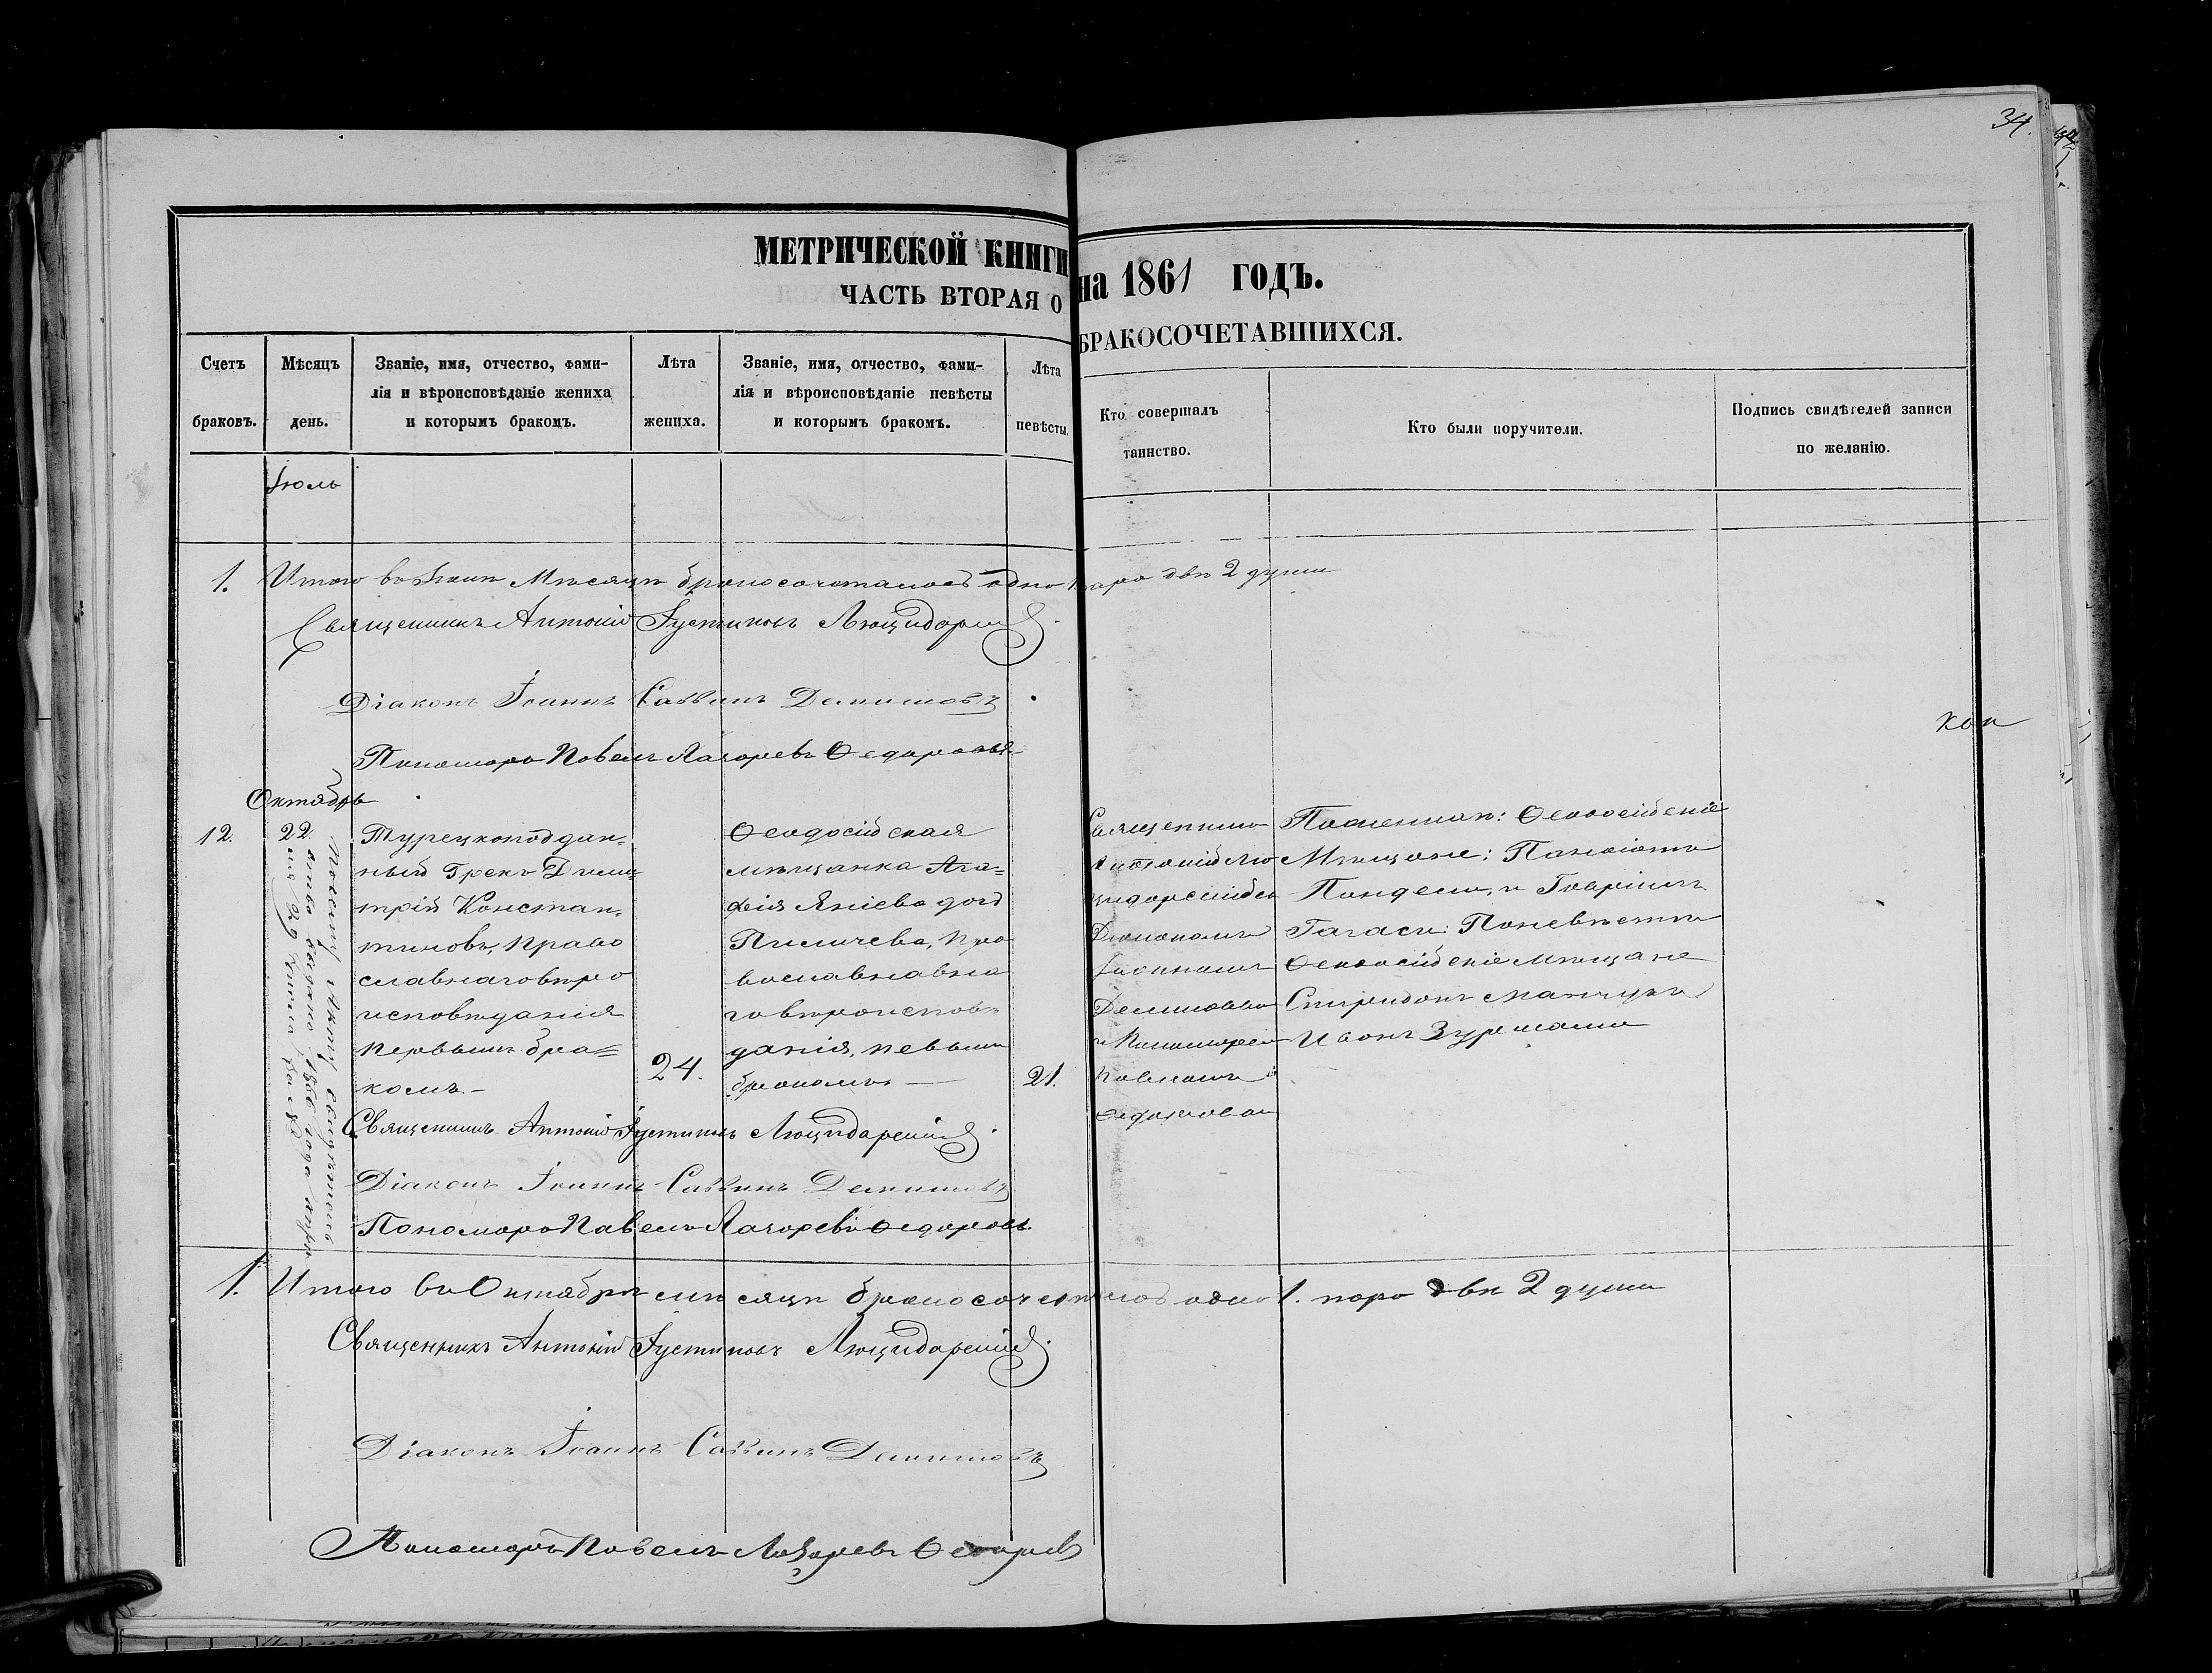 34.
МЕТРИЧЕСКОЙ КНИГИ на 1861 ГОДЪ.
ЧАСТЬ ВТОРАЯ О БРАКОСОЧЕТАВШИХСЯ.
Счетъ браковъ.
Мѣсяцъ день.
Званіе, имя, отчество, фами-
лія и вѣроисповѣданіе жениха
и которымъ бракомъ.
Лѣта жениха.
Званіе, имя, отчество, фами-
лія и вѣроисповѣданіе невѣсты
и которымъ бракомъ.
Лѣта невѣсты.
Кто совершалъ
таинство.
Кто были поручители.
Подпись свидѣтелей записи
по желанію.
Іюль
1. Итого въ Іюлѣ Мѣсяцѣ бракосочеталось одна пара двѣ 2 души
Священникъ Антоній Іустиновъ Люцидарскій.
Діаконъ Іоаннъ Саввинъ Демишовъ
Пономарь Павелъ Лазаревъ Ѳедоровъ
Октябрь
12.
22.
Турецкоподдан=
ный Грекъ Дими=
трій Констан=
тиновъ, право
славнаго вѣро
исповѣданія
первымъ бра=
комъ.—
24.
Ѳеодосійская
мѣщанка Ага=
фія Яніева дочь
Пиличева, пра
вославнаго
го вѣроисповѣ
данія, певымъ
бракомъ —
21.
Священникъ
Антоній Лю
цидарскій съ
Діакономъ
Іоанномъ
Демишовымъ
и Пономаремъ
Павломъ
Ѳедоровымъ
По женихѣ: Ѳеодосійскіе
Мѣщане: Панаіотъ
и
По невѣстѣ
Ѳеодосійскіе Мѣщане
Спиридонъ
Иванъ
Священникъ Антоній Іустиновъ Люцидарскій.
Діаконъ Іоаннъ Саввинъ Демишовъ
Пономарь Павелъ Лазаревъ Ѳедоровъ.
1. Итого въ Октябрѣ мѣсяцѣ бракосочеталось одна 1. пара двѣ 2 души
Священникъ Антоній Іустиновъ Люцидарскій.
Діаконъ Іоаннъ Саввинъ Демишовъ
Пономарь Павелъ Лазаревъ Ѳедоровъ